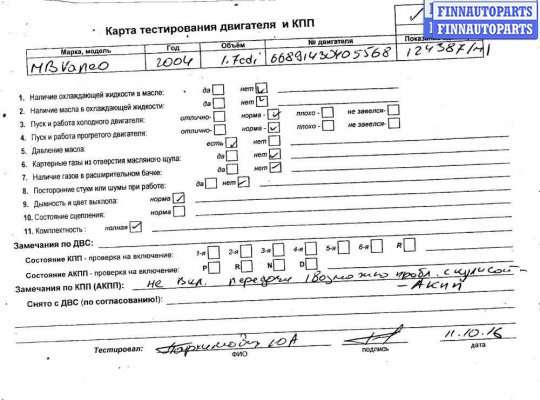 FINNAUTOPARTS
FINNAUTOPARTS
Карта тестирования двигателя и КПП
Марка, модель Год Объём № двигателя
MB Vaneo 2004 1.7cdi 66891430405568 124387/ml
1. Наличие охлаждающей жидкости в масле: да нет
2. Наличие масла в охлаждающей жидкости: да нет
3. Пуск и работа холодного двигателя: отлично- норма - плохо - не завелся-
4. Пуск и работа прогретого двигателя: отлично- норма - плохо - не завелся-
5. Давление масла: есть нет
6. Картерные газы из отверстия масляного щупа: да нет
7. Наличие газов в расширительном бачке: да нет
8. Посторонние стуки или шумы при работе: да нет
9. Дымность и цвет выхлопа: норма
10. Состояние сцепления: норма
11. Комплектность : полная
Замечания по ДВС:
Состояние КПП - проверка на включение: 1-я 2-я 3-я 4-я 5-я 6-я R
Состояние АКПП - проверка на включение: P R N D
Замечания по КПП (АКПП): не вкл. передачи (Возможно пробл. с кулисой
- АКПП
Снято с ДВС (по согласованию!):
Тестировал: Ю А 11.10.16
ФИО подпись дата